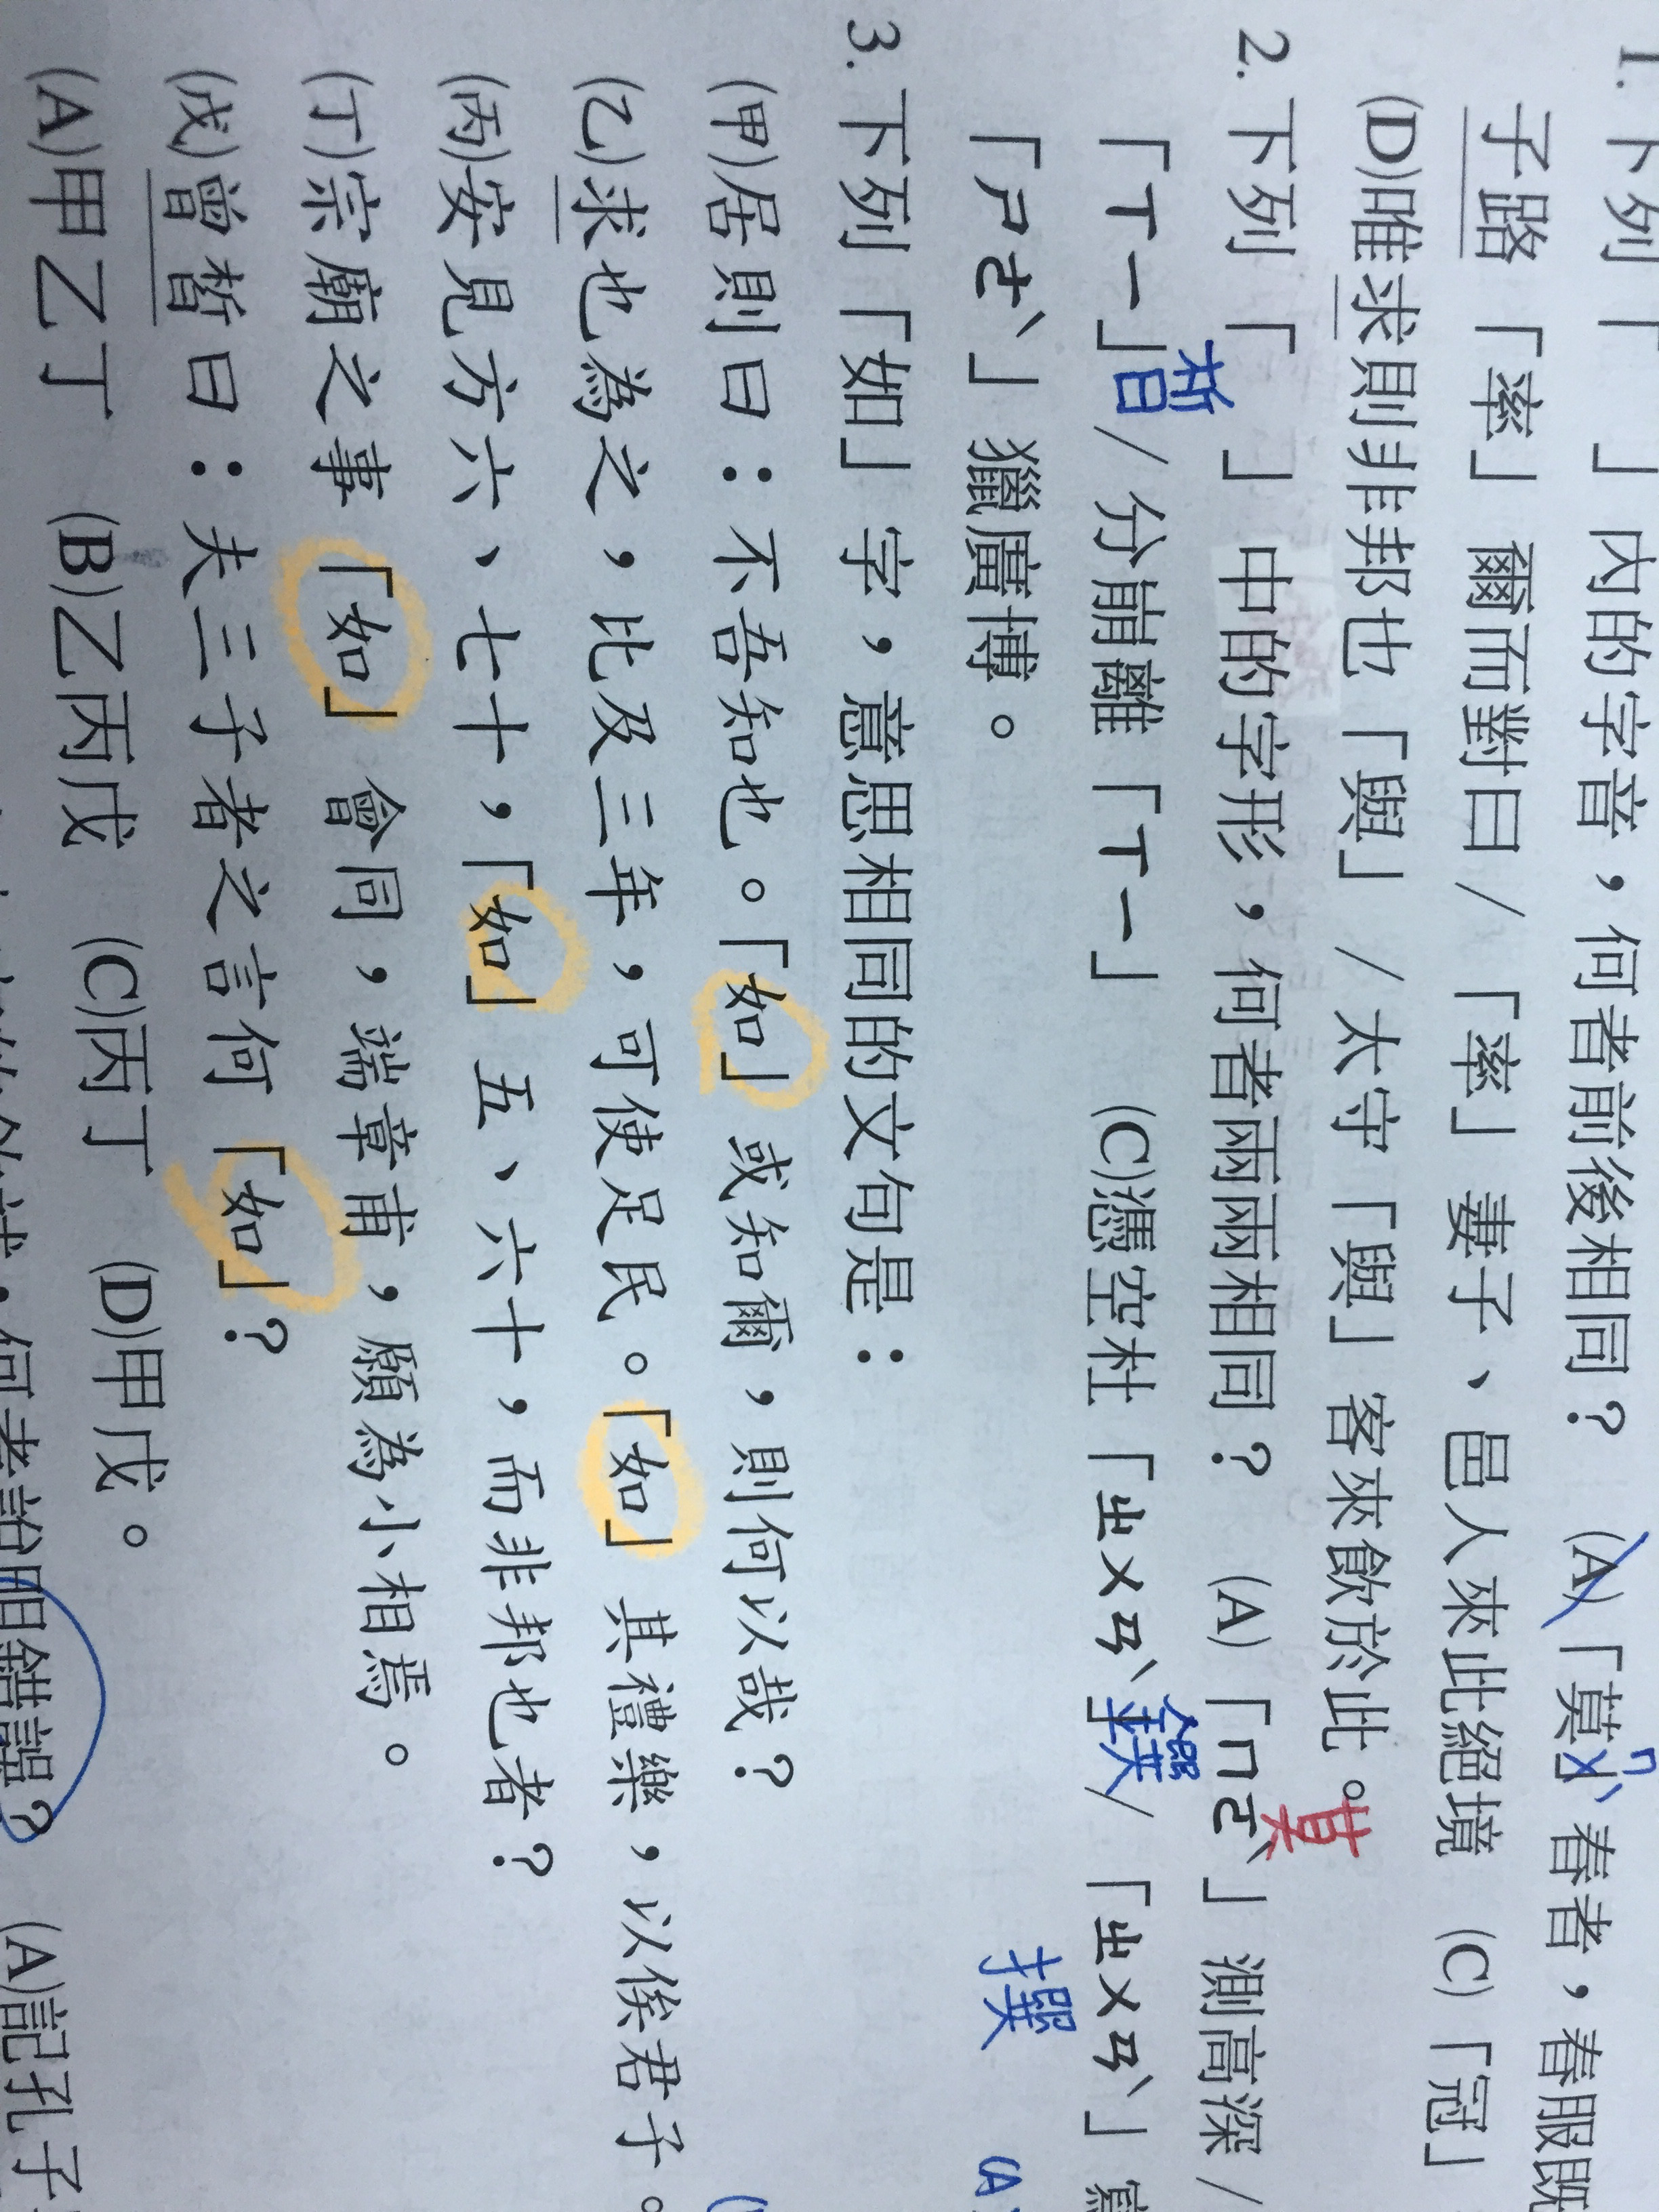 1. 下列「 」內的字音，何者前後相同？ (A)「莫ㄇㄨˋ」春者，春服既
子路「率」爾而對曰／「率」妻子、邑人來此絕境 (C)「冠」
(D)唯求則非邦也「與」／太守「與」客來飲於此。
莫
2. 下列「 」中的字形，何者兩兩相同？ (A)「ㄇㄛˋ」測高深／
「ㄒㄧ」皙／分崩離「ㄒㄧ」 (C)憑空杜「ㄓㄨㄢˋ」／「ㄓㄨㄢˋ」
撰
「ㄕㄜˋ」獵廣博。
3. 下列「如」字，意思相同的文句是：
(甲)居則曰：不吾知也。「如」或知爾，則何以哉？
(乙)求也為之，比及三年，可使足民。「如」其禮樂，以俟君子。
(丙)安見方六、七十，「如」五、六十，而非邦也者？
(丁)宗廟之事「如」會同，端章甫，願為小相焉。
(戊)曾皙曰：夫三子者之言何「如」？
(A)甲乙丁 (B)乙丙戊 (C)丙丁 (D)甲戊。
何者說明錯誤？ (A)記孔子